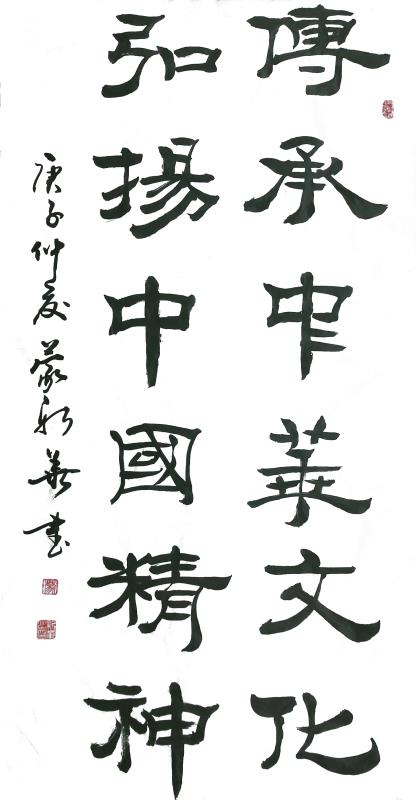 傳承中華文化
弘揚中國精神
庚子仲夏蒙新華書